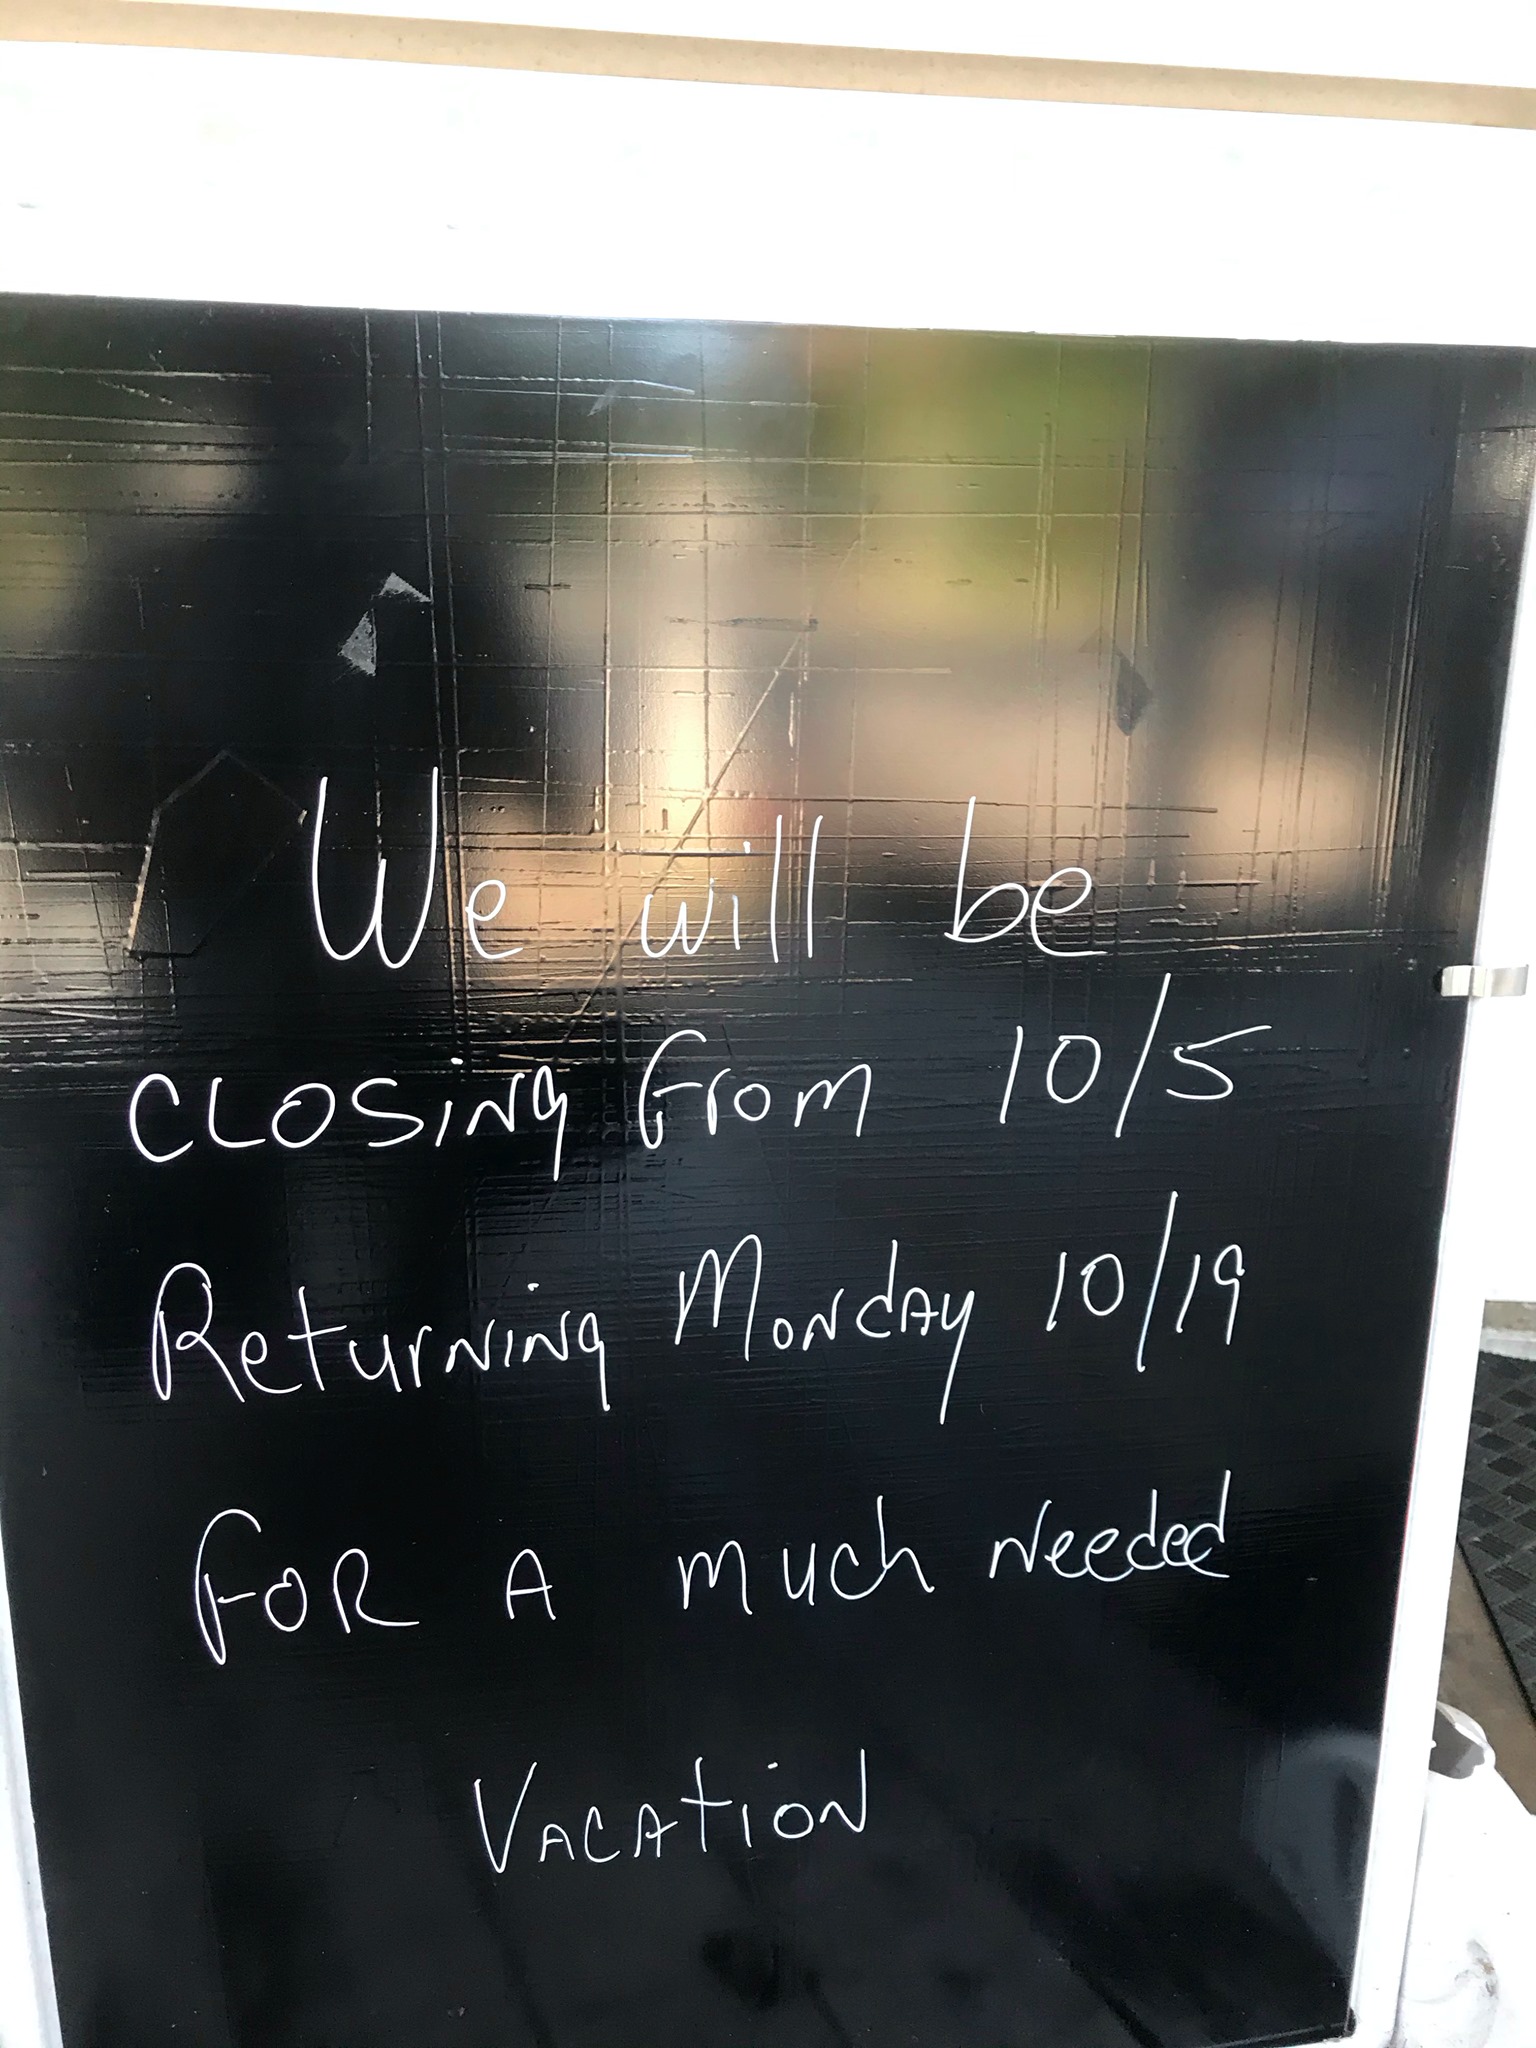 We will be
CLOSiNg From 10/5
ReturNiNg MoNdAy 10/19
FOR A much Needed
VACAtioN